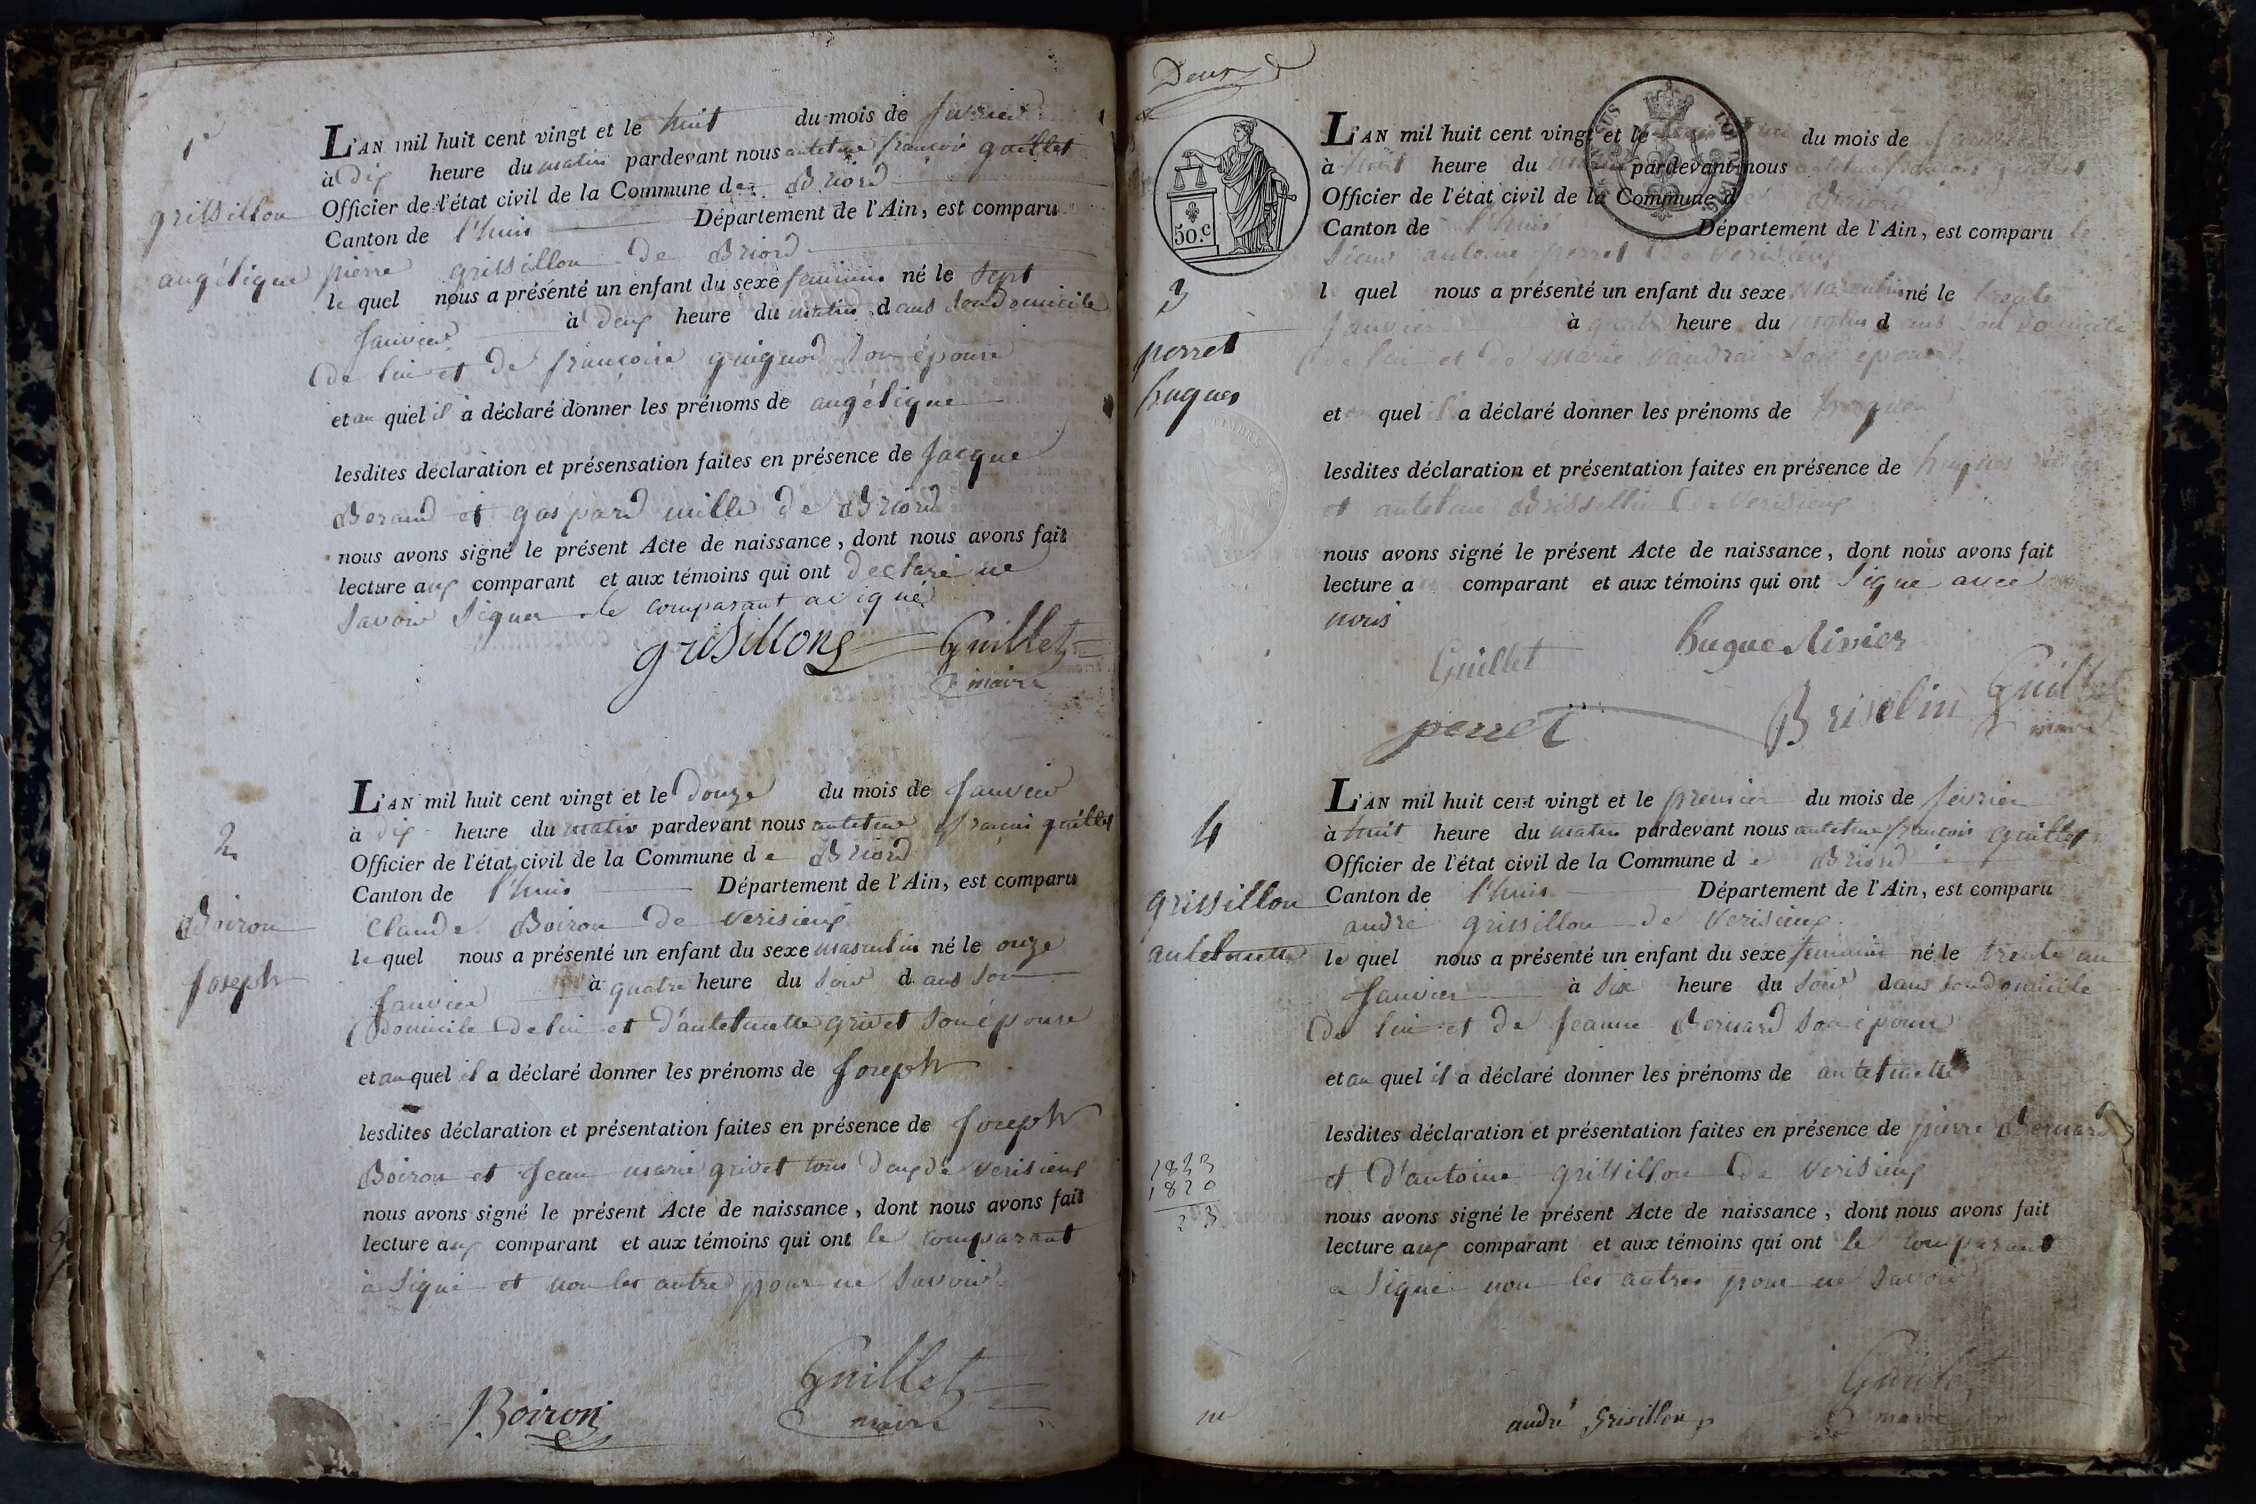 1
grissillon
angélique
L'AN mil huit cent vingt et le huit du mois de
à dix heure du matin pardevant nous antelme françois guillet
Officier de l'état civil de la Commune de Briord
Canton de l'huis Département de l'Ain, est comparu
pierre grissillon de Briord
le quel nous a présénté un enfant du sexe feminin né le sept
Janvier à deux heure du matin dans son domicile
de lui et de françoise guignod son épouse
et au quel il a déclaré donner les prénoms de angélique
lesdites déclaration et présensation faites en présence de Jacque
Beraud et gaspard mille de Briord
nous avons signé le présent Acte de naissance, dont nous avons fait
lecture aux comparant et aux témoins qui ont déclaré ne
savoir signer le comparant a signé
grisillons Guillet
maire
2
Boiron
Joseph
L'AN mil huit cent vingt et le douze du mois de Janvier
à dix heure du matin pardevant nous antelme françois guillet
Officier de l'état civil de la Commune de Briord
Canton de l'huis Département de l'Ain, est comparu
Claude Boiron de verisieux
le quel nous a présenté un enfant du sexe masculin né le onze
Janvier à quatre heure du soir dans son
domicile de lui et d'antelmette grivet son épouse
et au quel il a déclaré donner les prénoms de Joseph
lesdites déclaration et présentation faites en présence de Joseph
Boiron et Jean marie grivet tous deux de verisieux
nous avons signé le présent Acte de naissance, dont nous avons fait
lecture aux comparant et aux témoins qui ont le comparant
a signé et non les autres pour ne savoir
Boiron Guillet
maire
Deux
50.c
3
perret
hugues
L'AN mil huit cent vingt et le du mois de
à huit heure du matin pardevant nous antelme françois guillet
Officier de l'état civil de la Commune de Briord
Canton de l'huis Département de l'Ain, est comparu le
sieur antoine perret de verisieux
l quel nous a présenté un enfant du sexe masculin né le trente
Janvier à quatre heure du matin dans son domicile
de lui et de marie vaudrai son epouse
et au quel il a déclaré donner les prénoms de hugues
lesdites déclaration et présentation faites en présence de hugues
et antelme Brissellin de verisieux
nous avons signé le présent Acte de naissance, dont nous avons fait
lecture a comparant et aux témoins qui ont signé avec
nous
Guillet hugue
perret Briselin Guillet
maire
4
grissillon
antelmette
L'AN mil huit cent vingt et le premier du mois de février
à huit heure du matin pardevant nous antelme françois guillet
Officier de l'état civil de la Commune de Briord
Canton de l'huis Département de l'Ain, est comparu
andré grissillon de verisieux
le quel nous a présenté un enfant du sexe feminin né le trente un
Janvier à six heure du soir dans son domicile
de lui et de Jeanne Bernard son épouse
et au quel il a déclaré donner les prénoms de antelmette
lesdites déclaration et présentation faites en présence de pierre Bernard
et d'antoine grissillon de verisieux
nous avons signé le présent Acte de naissance, dont nous avons fait
lecture aux comparant et aux témoins qui ont le comparant
a signé non les autres pour ne savoir
1833
1820
23
andré Grisillon Guillet
maire